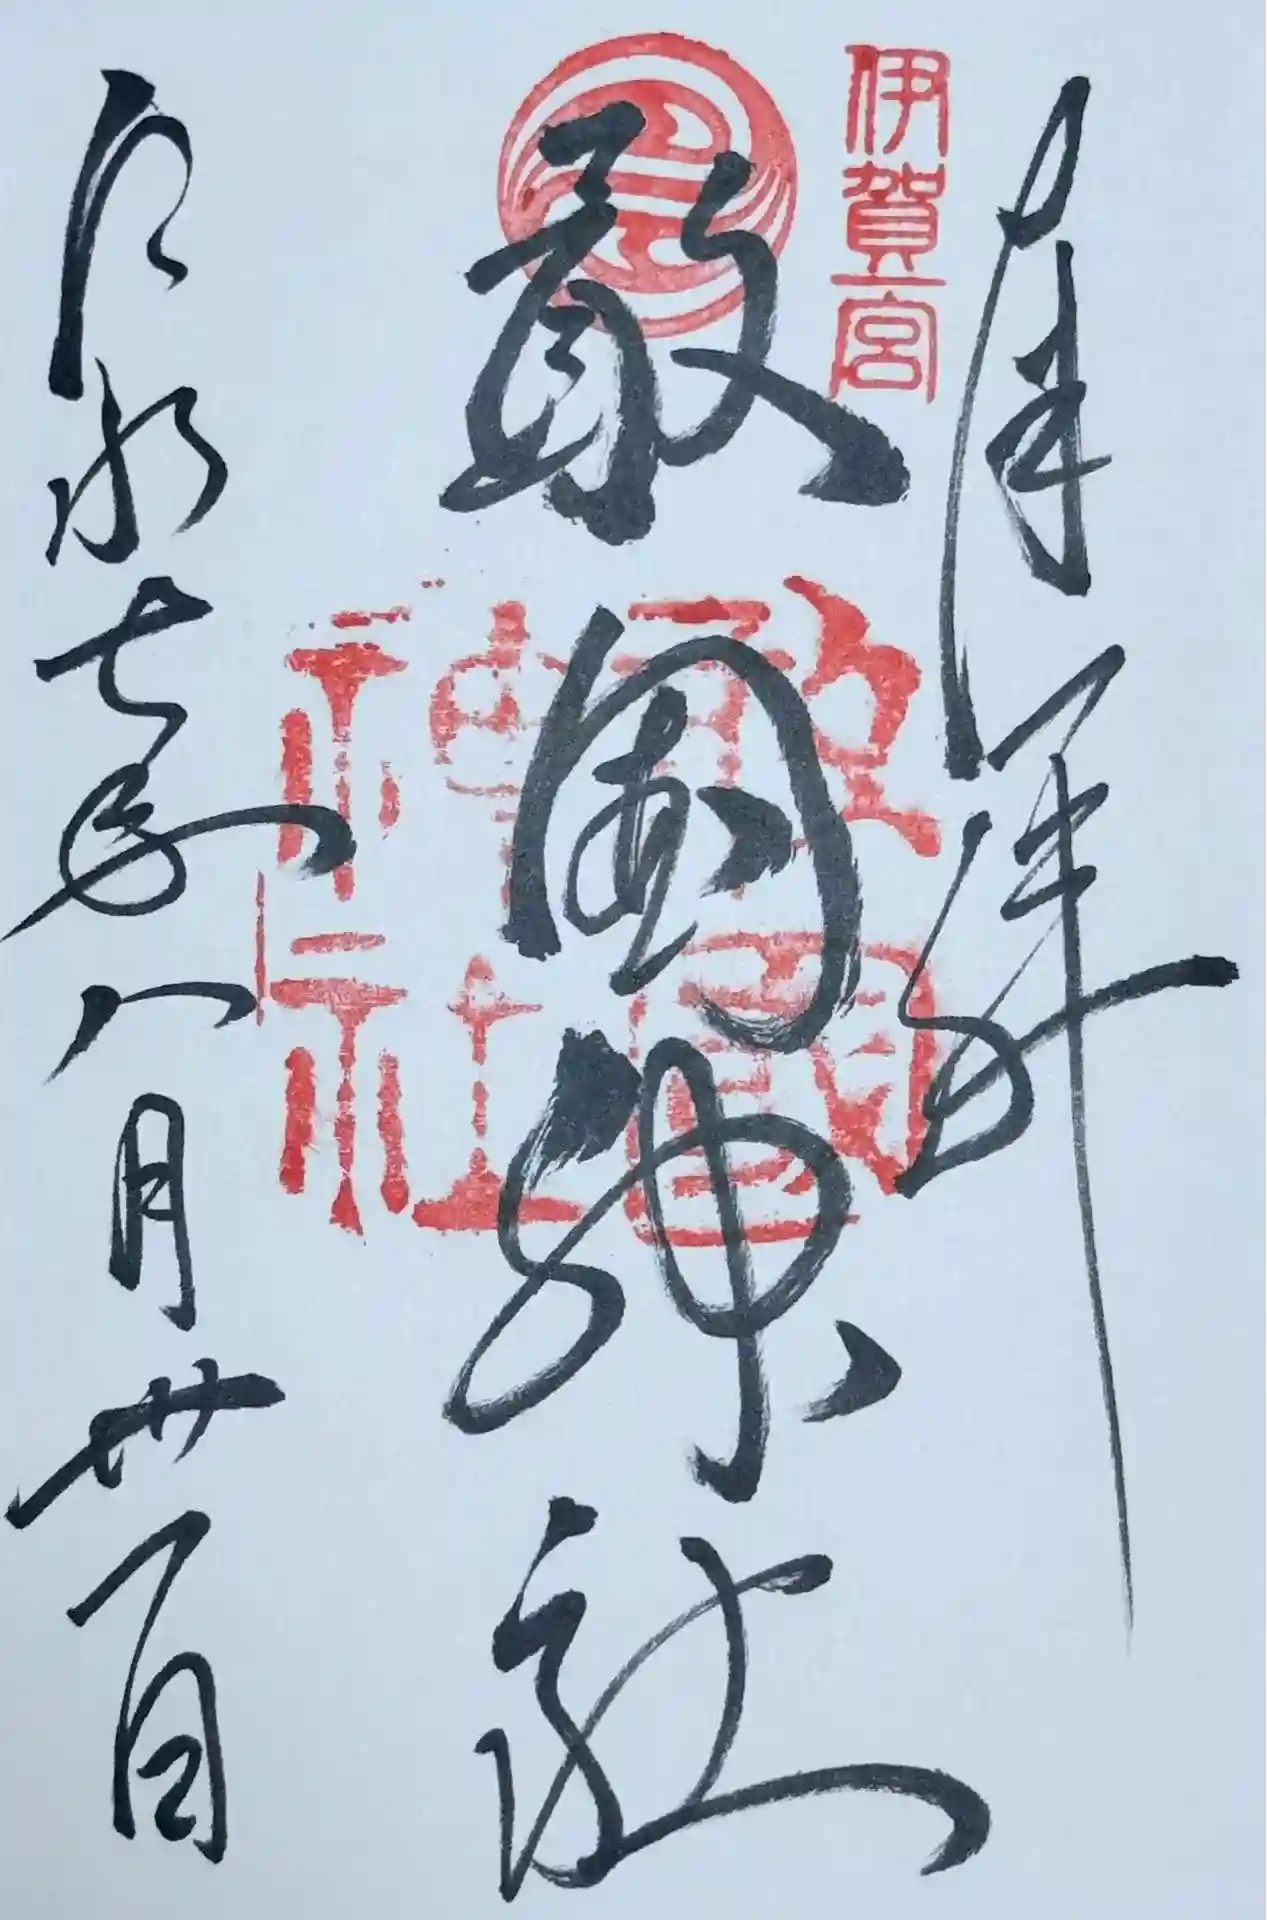 奉拝
伊賀一宮
敢國神社
敢國
神社
令和七年八月卅一日